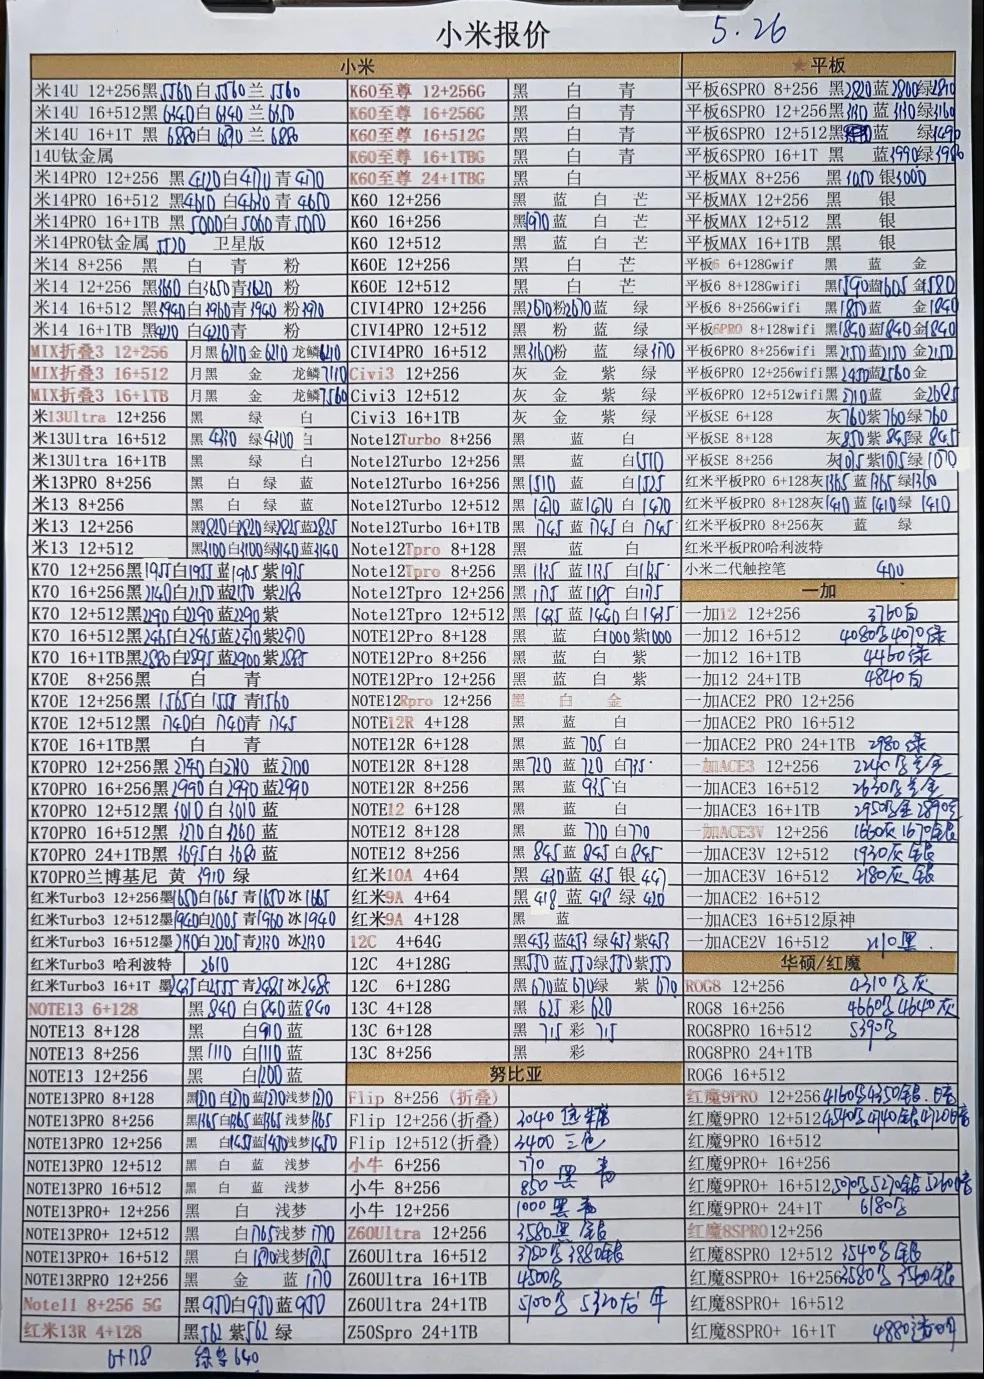 小米报价 5.26
小米
米14U 12+256黑5560白5560兰5560
米14U 16+512黑6440白6440兰6450
米14U 16+1T 黑6880白6890兰6880
14U钛金属
米14PRO 12+256 黑4120白4170青4170
米14PRO 16+512 黑4610白4640青4650
米14PRO 16+1TB 黑5000白5060青5050
米14PRO钛金属 5520 卫星版
米14 8+256 黑 白 青 粉
米14 12+256 黑3630白3650青3620 粉
米14 16+512 黑3940白3960青3940 粉3970
米14 16+1TB 黑4210 白4220青 粉
MIX折叠3 12+256 月黑6210 金6210 龙鳞6210
MIX折叠3 16+512 月黑 金 龙鳞7110
MIX折叠3 16+1TB 月黑 金 龙鳞7560
米13Ultra 12+256 黑 绿 白
米13Ultra 16+512 黑 4330 绿4300 白
米13Ultra 16+1TB 黑 绿 白
米13PRO 8+256 黑 白 绿 蓝
米13 8+256 黑 白 绿 蓝
米13 12+256 黑2820白2820绿2825蓝2825
米13 12+512 黑3100白3100绿3140蓝3140
K70 12+256黑1955白1955蓝1965紫1975
K70 16+256黑2140白2150蓝2150紫2180
K70 12+512黑2290白2290蓝2290紫
K70 16+512黑2465白2465蓝2470紫2470
K70 16+1TB黑2880白2895蓝2900紫2885
K70E 8+256黑 白 青
K70E 12+256黑 1565白1555 青1560
K70E 12+512黑 1740白1740青1745
K70E 16+1TB黑 白 青
K70PRO 12+256黑2740白2710 蓝2700
K70PRO 16+256黑2990白2990蓝2990
K70PRO 12+512黑3010白3010蓝
K70PRO 16+512黑3270白3260蓝
K70PRO 24+1TB黑3695白3680蓝
K70PRO兰博基尼 黄 3910 绿
红米Turbo3 12+256墨1650白1665 青1650 冰1665
红米Turbo3 12+512墨1940白2005 青1960 冰1940
红米Turbo3 16+512墨2130白2205 青2130 冰2130
红米Turbo3 哈利波特 2610
红米Turbo3 16+1T 墨2485白2555 青2485 冰2485
NOTE13 6+128 黑 840 白840蓝840
NOTE13 8+128 黑 白910蓝
NOTE13 8+256 黑1110 白1110蓝
NOTE13 12+256 黑 白1200蓝
NOTE13PRO 8+128 黑1210 白1270 蓝1270浅梦1270
NOTE13PRO 8+256 黑1365白1365蓝1365浅梦1365
NOTE13PRO 12+256 黑 白1450蓝1450浅梦1450
NOTE13PRO 12+512 黑 白 蓝 浅梦
NOTE13PRO 16+512 黑 白 蓝 浅梦
NOTE13PRO+ 12+256 黑 白 浅梦
NOTE13PRO+ 12+512 黑 白1765浅梦1770
NOTE13PRO+ 16+512 黑 白1870浅梦1875
NOTE13RPRO 12+256 黑 金 蓝 1170
Note11 8+256 5G 黑950白950蓝950
红米13R 4+128 黑562 紫562 绿
6+128 640
K60至尊 12+256G 黑 白 青
K60至尊 16+256G 黑 白 青
K60至尊 16+512G 黑 白 青
K60至尊 16+1TBG 黑 白 青
K60至尊 24+1TBG 黑 白
K60 12+256 黑 蓝 白 芒
K60 16+256 黑1970 蓝 白 芒
K60 12+512 黑 蓝 白 芒
K60E 12+256 黑 白 芒
K60E 12+512 黑 白 芒
CIVI4PRO 12+256 黑2670粉2670蓝 绿
CIVI4PRO 12+512 黑 粉 蓝 绿
CIVI4PRO 16+512 黑3160粉 蓝 绿3170
Civi3 12+256 灰 金 紫 绿
Civi3 12+512 灰 金 紫 绿
Civi3 16+1TB 灰 金 紫 绿
Note12Turbo 8+256 黑 蓝 白
Note12Turbo 12+256 黑 蓝 白1510
Note12Turbo 16+256 黑1510 蓝 白1525
Note12Turbo 12+512 黑1470 蓝1470 白1470
Note12Turbo 16+1TB 黑1745 蓝1745 白1745
Note12Tpro 8+128 黑 蓝 白
Note12Tpro 8+256 黑1135 蓝1135 白1135
Note12Tpro 12+256 黑1175 蓝1185 白1175
Note12Tpro 12+512 黑1435 蓝1440 白1435
NOTE12Pro 8+128 黑 蓝 白1000紫1000
NOTE12Pro 8+256 黑 蓝 白 紫
NOTE12Pro 12+256 黑 蓝 白 紫
NOTE12Rpro 12+256 黑 白 金
NOTE12R 4+128 黑 蓝 白
NOTE12R 6+128 黑 蓝 705 白
NOTE12R 8+128 黑720 蓝 720 白735
NOTE12R 8+256 黑 蓝 935 白
NOTE12 6+128 黑 蓝 白
NOTE12 8+128 黑 蓝 770 白770
NOTE12 8+256 黑 845 蓝 845 白845
红米10A 4+64 黑 430蓝 435 银 447
红米9A 4+64 黑 418 蓝 418 绿 420
红米9A 4+128 黑 蓝
12C 4+64G 黑453蓝453 绿453紫453
12C 4+128G 黑550蓝550绿550紫550
12C 6+128G 黑670蓝670绿 紫 670
13C 4+128 黑 625 彩 620
13C 6+128 黑 715 彩 715
13C 8+256 黑 彩
努比亚
Flip 8+256 (折叠)
Flip 12+256(折叠) 3040
Flip 12+512(折叠) 3400 三色
小牛 6+256 770
小牛 8+256 850 黑 青
小牛 12+256 1000 黑 青
Z60Ultra 12+256 3580黑 银
Z60Ultra 16+512 3750 3880银
Z60Ultra 16+1TB 4500
Z60Ultra 24+1TB 5100 5320
Z50Spro 24+1TB
★平板
平板6SPRO 8+256 黑2820蓝2800绿2810
平板6SPRO 12+256黑3130蓝3130绿3160
平板6SPRO 12+512黑 蓝 绿3490
平板6SPRO 16+1T 黑 蓝3990绿3980
平板MAX 8+256 黑3050 银3000
平板MAX 12+256 黑 银
平板MAX 12+512 黑 银
平板MAX 16+1TB 黑 银
平板6 6+128Gwif 黑 蓝 金
平板6 8+128Gwifi 黑1590蓝1605 金1580
平板6 8+256Gwifi 黑1850蓝 金1840
平板6PRO 8+128wifi 黑1840蓝1840金1840
平板6PRO 8+256wifi 黑2150蓝2150 金2150
平板6PRO 12+256wifi黑2450蓝2560金
平板6PRO 12+512wifi黑2710蓝 金2685
平板SE 6+128 灰760紫760绿760
平板SE 8+128 灰850紫 845绿845
平板SE 8+256 灰1075紫1075绿1070
红米平板PRO 6+128灰1365 蓝 1365 绿1360
红米平板PRO 8+128灰1410 蓝1410绿 1410
红米平板PRO 8+256灰 蓝 绿
红米平板PRO哈利波特
小米二代触控笔 400
一加
一加12 12+256 3760白
一加12 16+512 4080 4070绿
一加12 16+1TB 4460绿
一加12 24+1TB 4840白
一加ACE2 PRO 12+256
一加ACE2 PRO 16+512
一加ACE2 PRO 24+1TB 2980绿
一加ACE3 12+256
一加ACE3 16+512 2630
一加ACE3 16+1TB 2950 2890
一加ACE3V 12+256 1660灰 1670银
一加ACE3V 12+512 1930灰 银
一加ACE3V 16+512 2180灰 银
一加ACE2 16+512
一加ACE3 16+512原神
一加ACE2V 16+512 2110黑
华硕/红魔
ROG8 12+256 4310 灰
ROG8 16+256 4660 4640灰
ROG8PRO 16+512 5390
ROG8PRO 24+1TB
ROG6 16+512
红魔9PRO 12+256 4160 4350银
红魔9PRO 12+512 4540 4740银4720
红魔9PRO 16+512
红魔9PRO+ 16+256
红魔9PRO+ 16+512 5090 5270银 5260
红魔9PRO+ 24+1T 6180
红魔8SPRO12+256
红魔8SPRO 12+512 3540 银
红魔8SPRO+ 16+256 3580 3560银
红魔8SPRO+ 16+512
红魔8SPRO+ 16+1T 4880